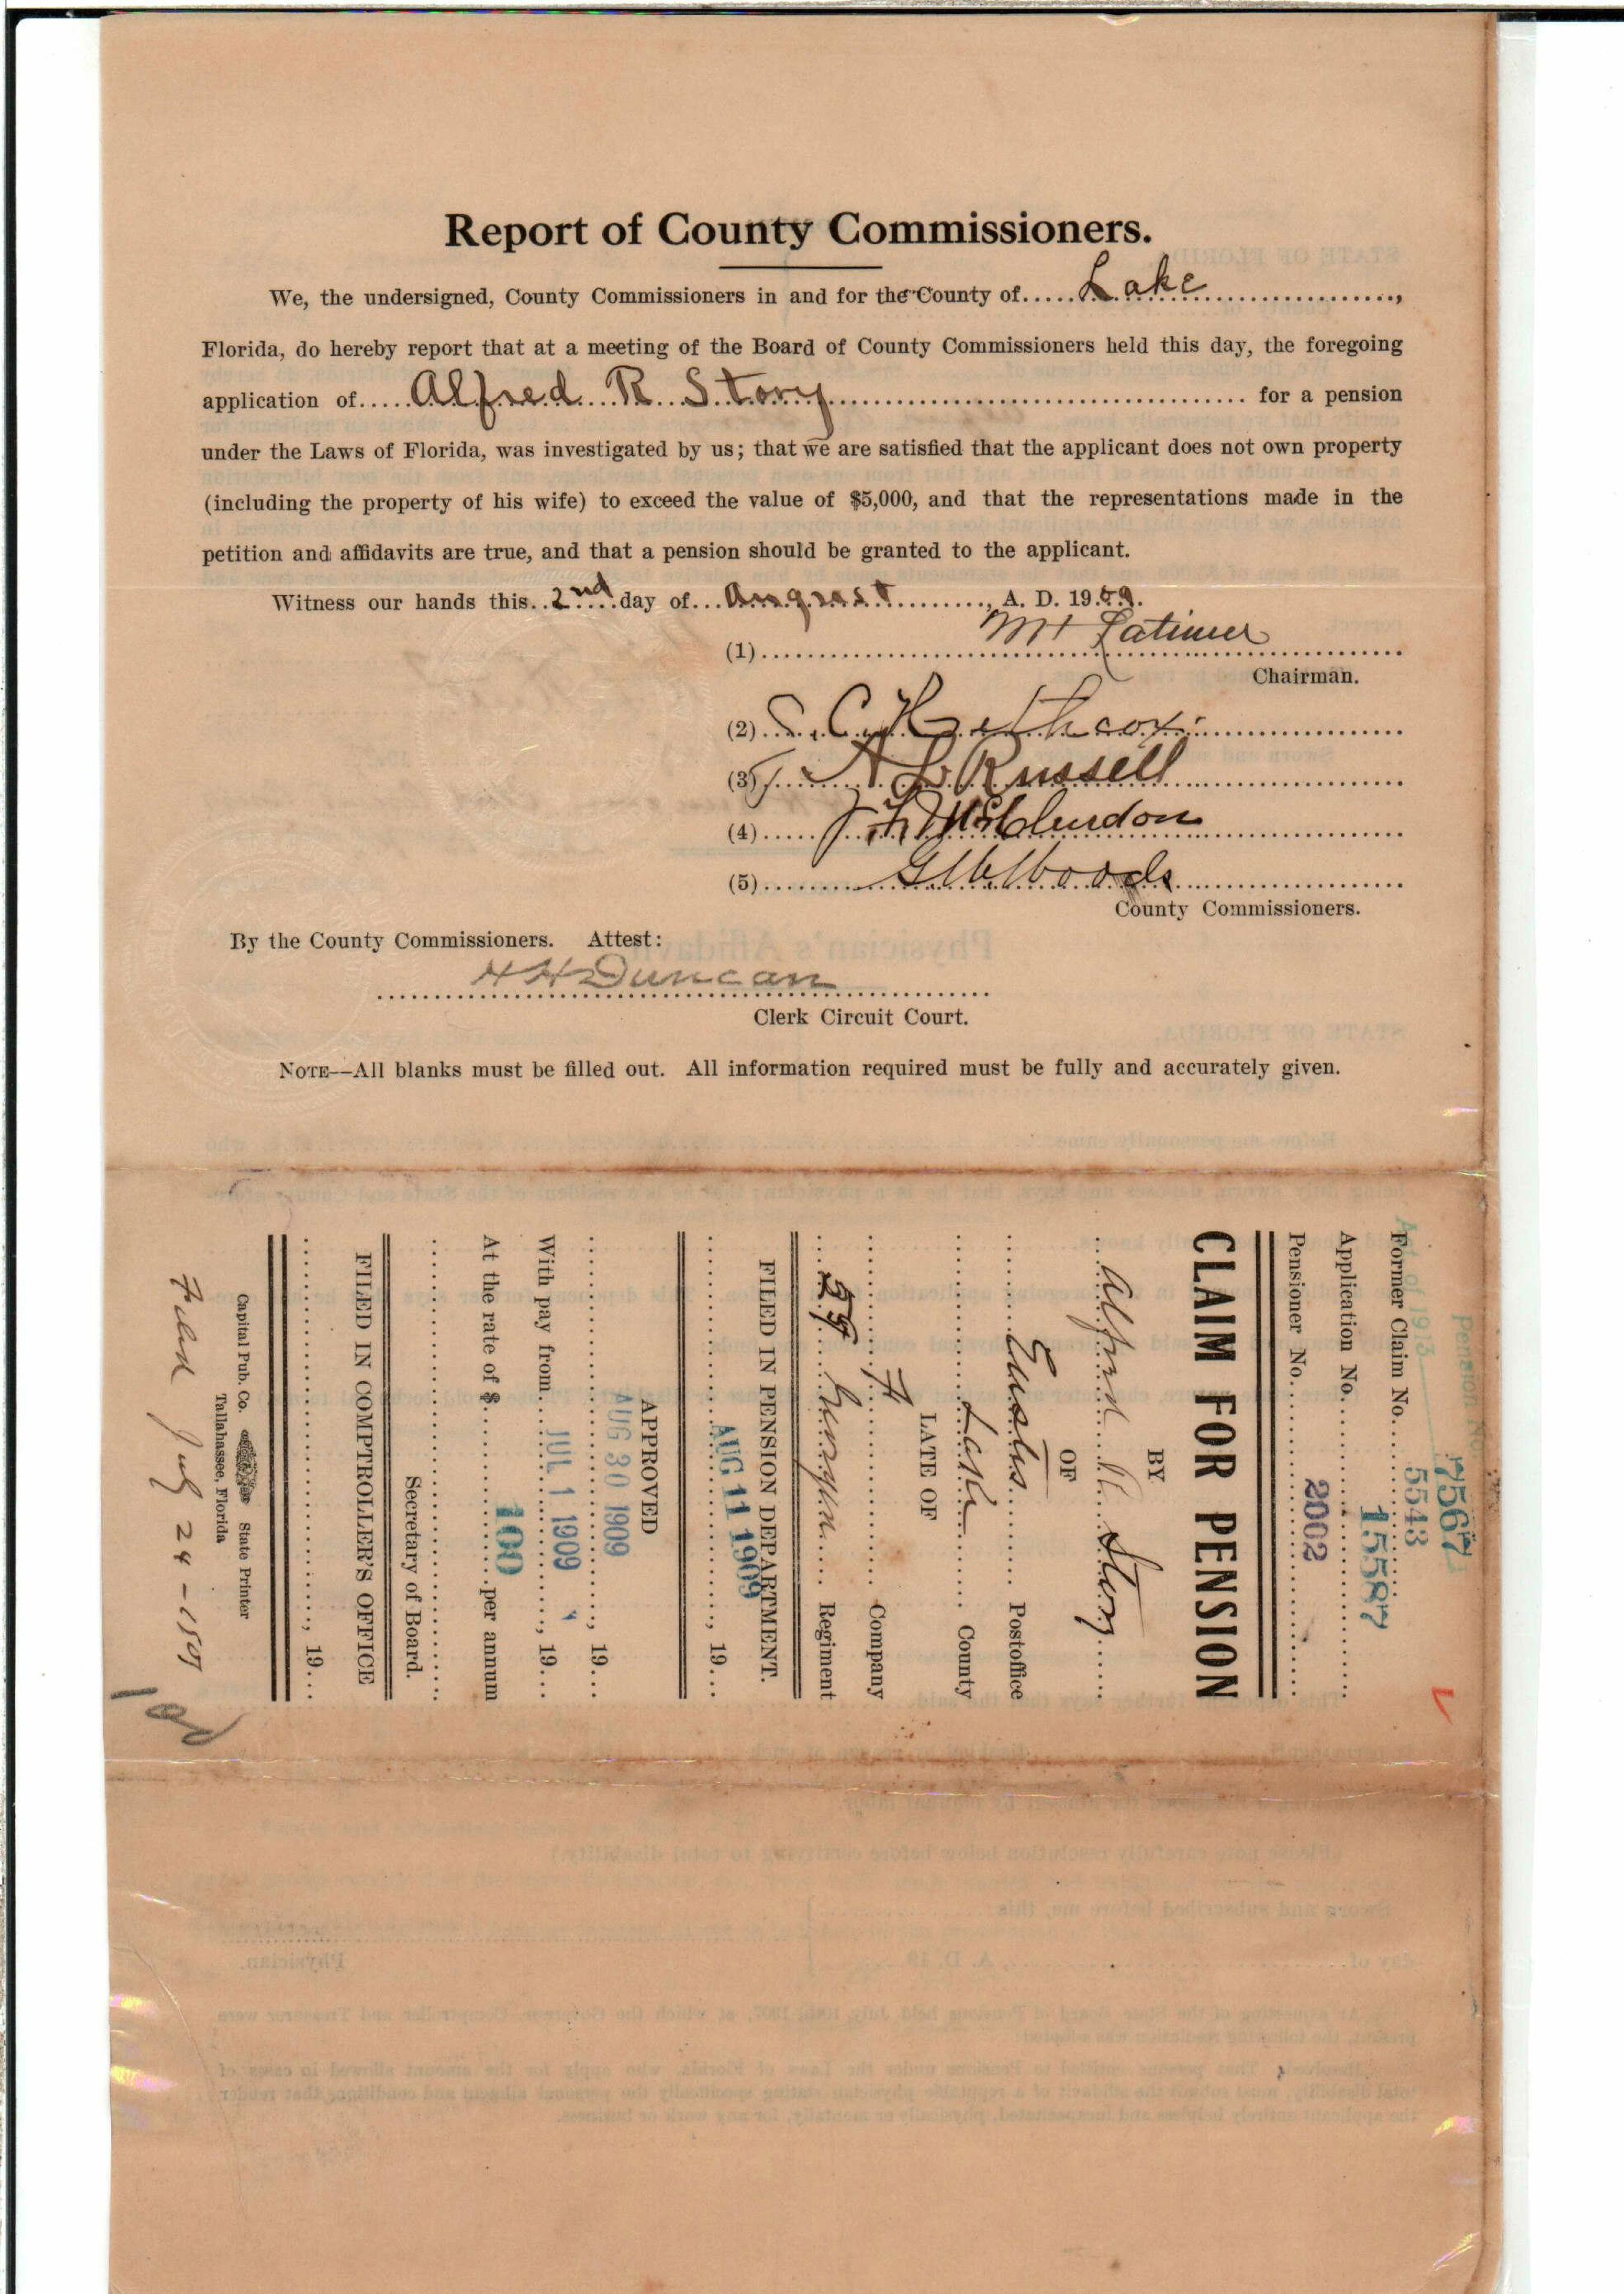 Report of County Commissioners.
We, the undersigned, County Commissioners in and for the County of Lake,
Florida, do hereby report that at a meeting of the Board of County Commissioners held this day, the foregoing
application of Alfred R Story for a pension
under the Laws of Florida, was investigated by us; that we are satisfied that the applicant does not own property
(including the property of his wife) to exceed the value of $5,000, and that the representations made in the
petition and affidavits are true, and that a pension should be granted to the applicant.
Witness our hands this 2nd day of August, A. D. 1909.
(1) Latimer
Chairman.
(2) C. Hethcox
(3) A L Russell
(4) McClendon
(5) Woods
County Commissioners.
By the County Commissioners. Attest:
H H Duncan
Clerk Circuit Court.
NOTE--All blanks must be filled out. All information required must be fully and accurately given.
Pension No. 7567
Act of 1913
Former Claim No. 5543
Application No. 15587
Pensioner No. 2002
CLAIM FOR PENSION
BY
Alfred R. Story
OF
Eustis Postoffice
Lake County
LATE OF
Company
Regiment
FILED IN PENSION DEPARTMENT.
AUG 11 1909, 19
APPROVED
AUG 30 1909, 19
With pay from JUL 1 1909, 19
At the rate of $ 100 per annum
Secretary of Board.
FILED IN COMPTROLLER'S OFFICE
, 19
Capital Pub. Co. State Printer
Tallahassee, Florida
Filed July 24 - 1909
100